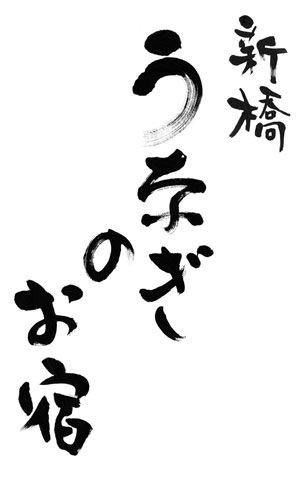 新橋
うなぎ
の
お宿